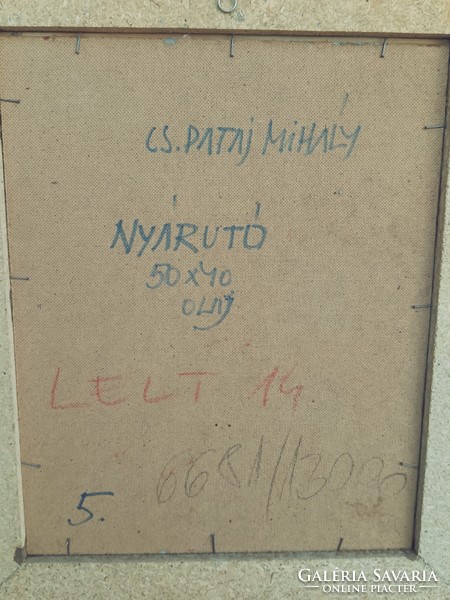 CS. PATAJ MIHÁLY
NYÁRUTÓ
50x40
OLAJ
LELT 14.
6681/13000
5.
GALÉRIA SAVARIA
ONLINE PIACTÉR